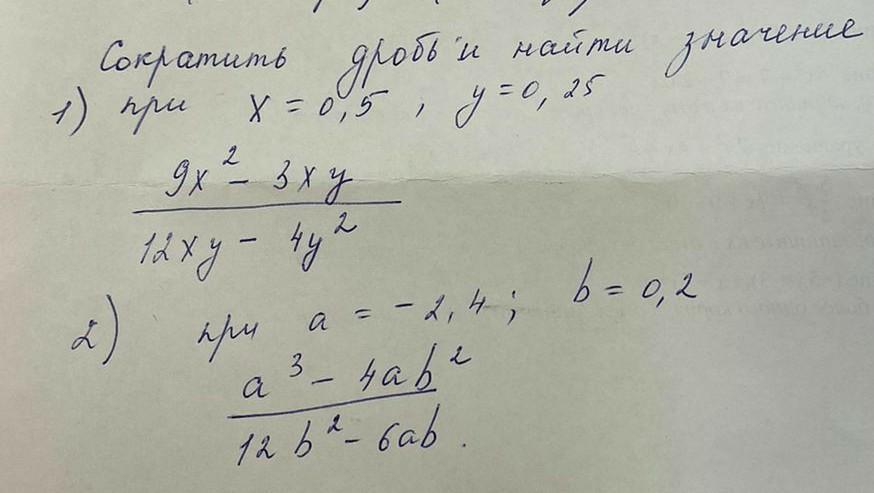 Сократить дробь и найти значение
1) при x = 0,5 , y = 0,25
9x² - 3xy
12xy - 4y²
2) при a = -2,4; b = 0,2
a³ - 4ab²
12b² - 6ab.